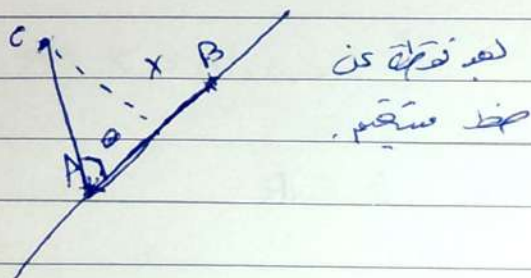 C
x
B
بعد نقطة عن
خط مستقيم.
θ
A